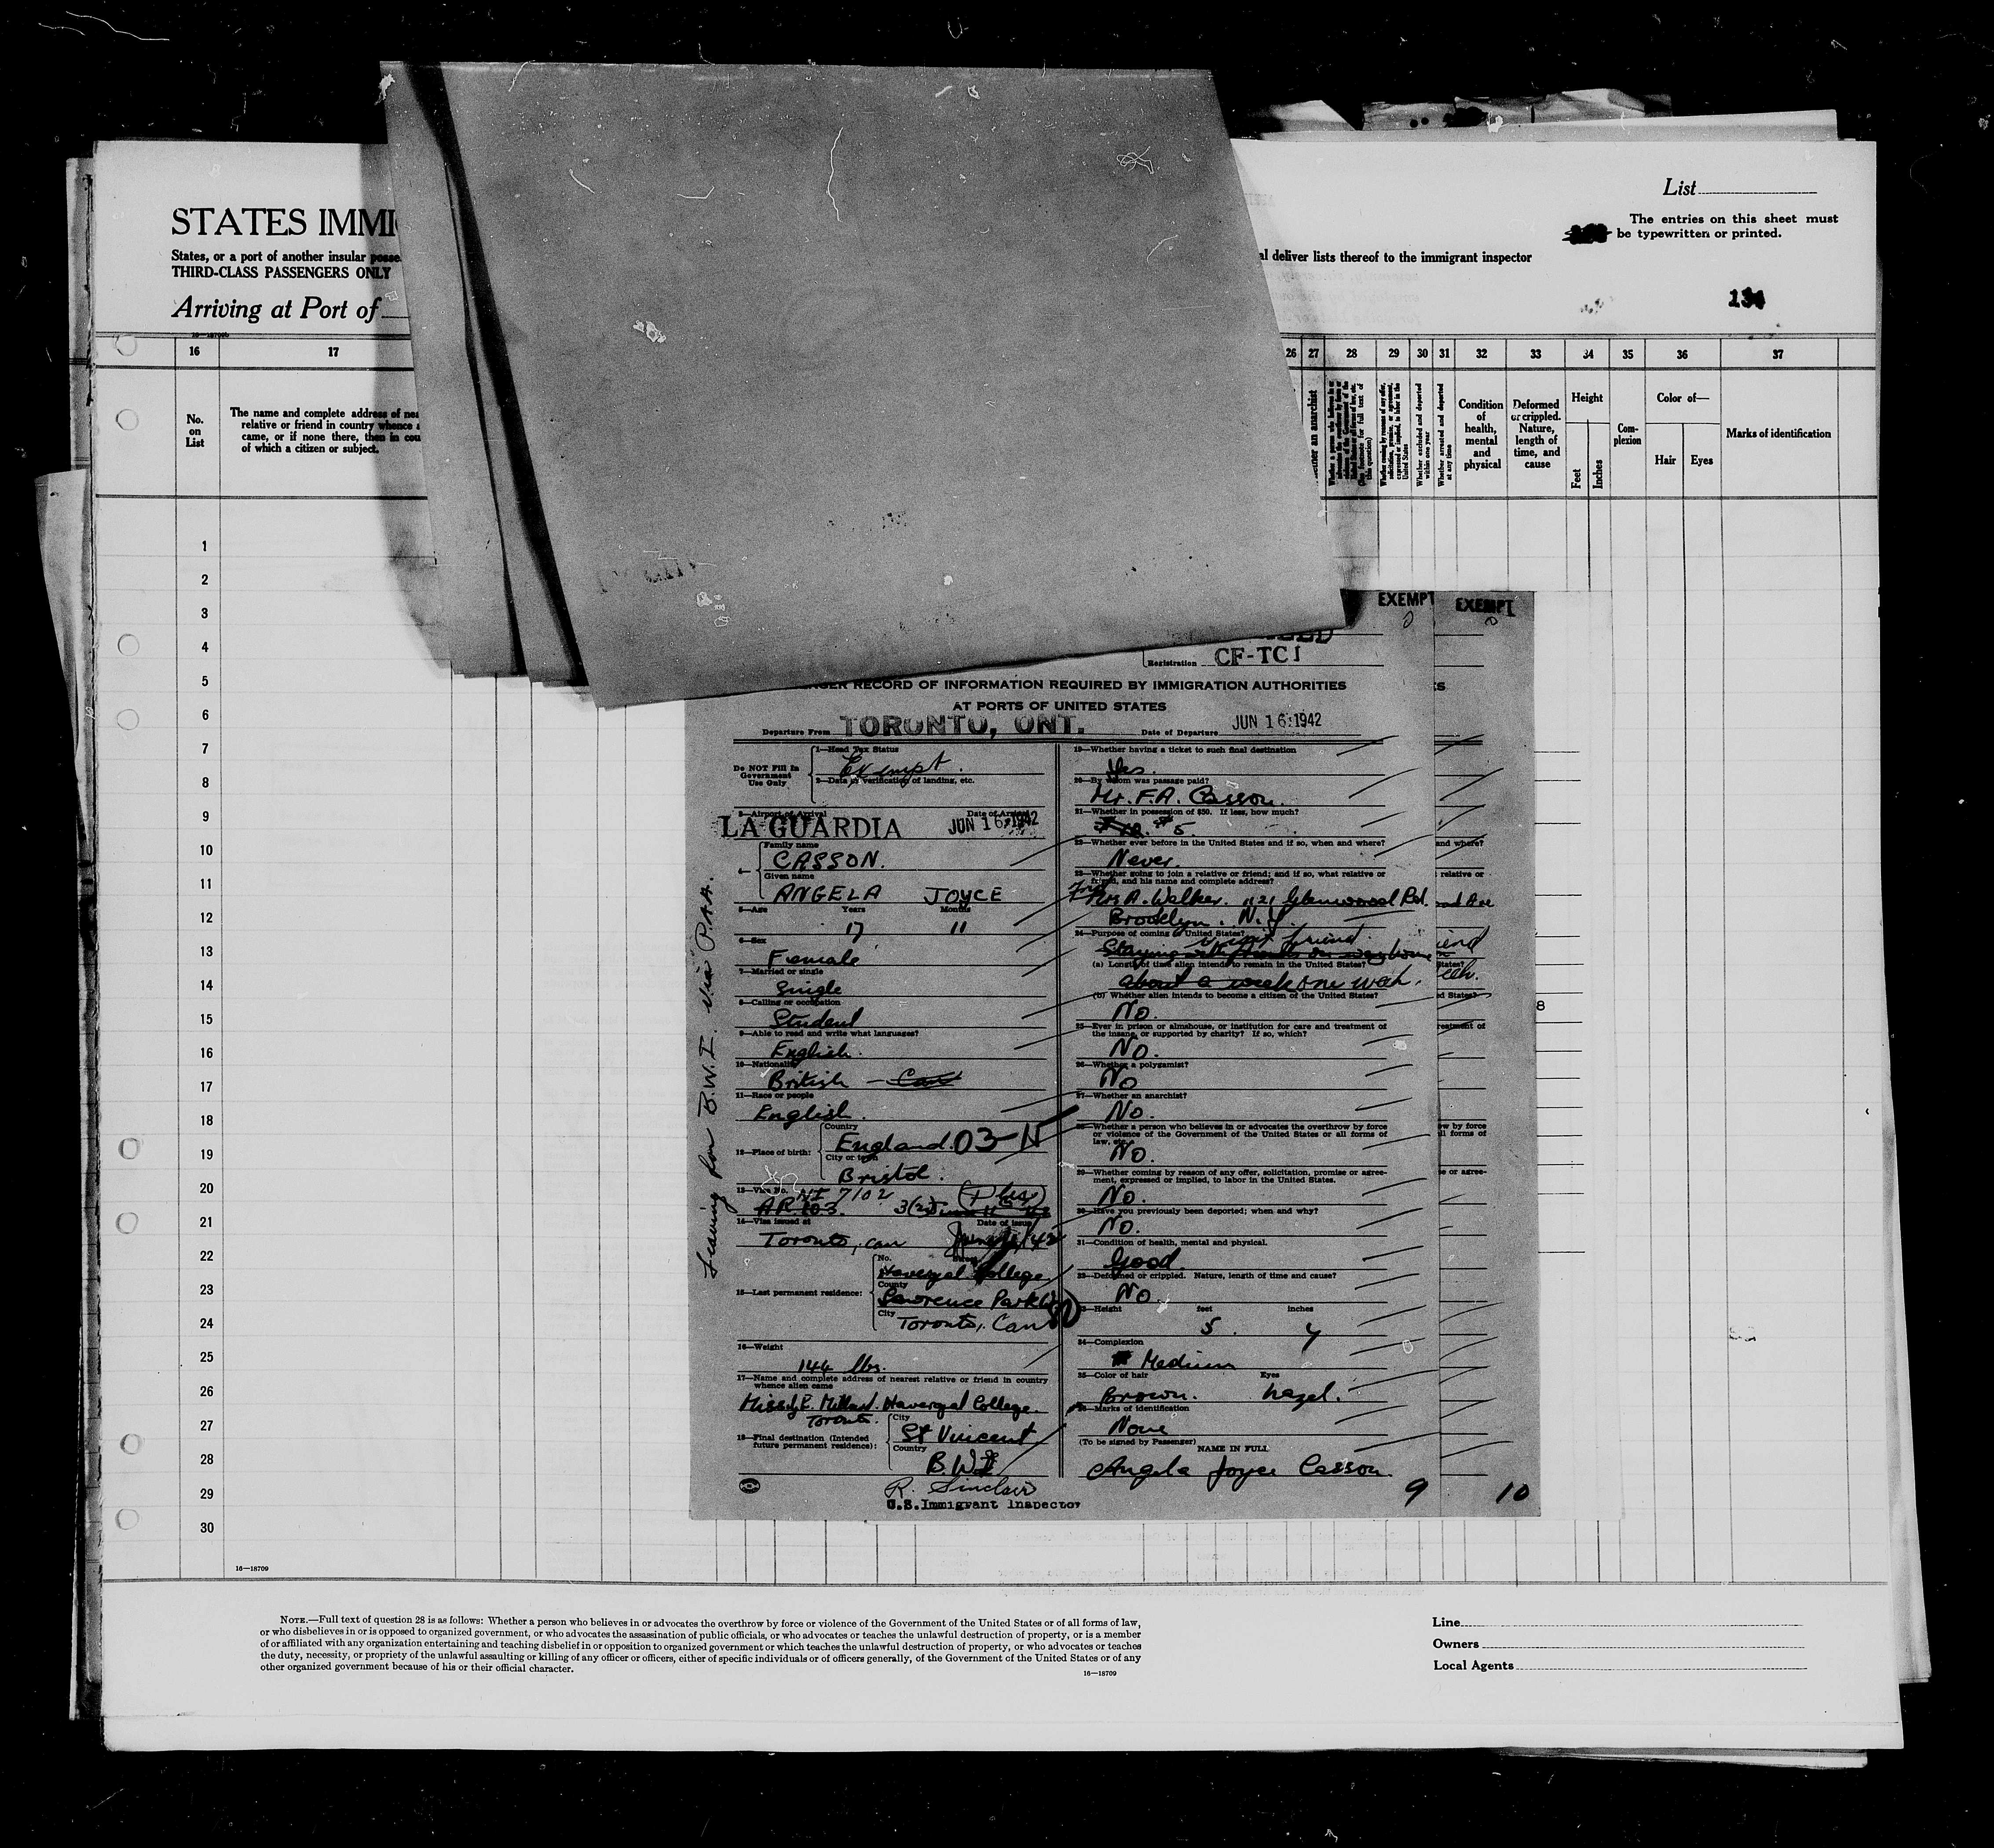 List
STATES IMMI
The entries on this sheet must
be typewritten or printed.
States, or a port of another insular posse
al deliver lists thereof to the immigrant inspector
THIRD-CLASS PASSENGERS ONLY
Arriving at Port of
134
16 17 26 27 28 29 30 31 32 33 34 35 36 37
No.
on
List
The name and complete address of nea
relative or friend in country whence a
came, or if none there, then in cou
of which a citizen or subject.
Whether excluded and deported
within one year
Whether arrested and deported
at any time
Condition
of
health,
mental
and
physical
Deformed
or crippled.
Nature,
length of
time, and
cause
Height
Feet
Inches
Com-
plexion
Color of—
Hair Eyes
Marks of identification
1
2
3
4
5
6
7
8
9
10
11
12
13
14
15
16
17
18
19
20
21
22
23
24
25
26
27
28
29
30
EXEMPT EXEMPT
Registration CF-TCI
RECORD OF INFORMATION REQUIRED BY IMMIGRATION AUTHORITIES
AT PORTS OF UNITED STATES
Departure From TORONTO, ONT. Date of Departure JUN 16 1942
Do NOT Fill In
Government
Use Only
1—Head Tax Status
Exempt.
2—Data in verification of landing, etc.
3—Airport of Arrival Date of Arrival
LA GUARDIA JUN 16 1942
Family name
CASSON.
Given name
ANGELA JOYCE
5—Age Years Months
17 11
6—Sex
Female
7—Married or single
Single
8—Calling or occupation
Student
9—Able to read and write what languages?
English.
10—Nationality
British
11—Race or people
English.
12—Place of birth:
Country
England. 03-N
City or town
Bristol.
13—Visa No. NI 7102
3(2)
14—Visa issued at Date of issue
Toronto, Can
15—Last permanent residence:
No.
Havergal College
County
Lawrence Park
City
Toronto, Can
16—Weight
144 lbs.
17—Name and complete address of nearest relative or friend in country
whence alien came
Havergal College.
Toronto.
18—Final destination (Intended
future permanent residence):
City
St Vincent
Country
B.W.I
R. Sinclair
U.S. Immigrant Inspector
Leaving for B.W.I. via P.A.A.
19—Whether having a ticket to such final destination
Yes.
20—By whom was passage paid?
Mr. F.A. Casson.
21—Whether in possession of $50. If less, how much?
$5.
22—Whether ever before in the United States and if so, when and where?
Never.
23—Whether going to join a relative or friend; and if so, what relative or
friend, and his name and complete address?
Mrs A. Walker. 1121 Glenwood Rd.
Brooklyn. N.Y.
24—Purpose of coming to United States?
visit friend
(a) Length of time alien intends to remain in the United States?
about a week
(b) Whether alien intends to become a citizen of the United States?
No.
25—Ever in prison or almshouse, or institution for care and treatment of
the insane, or supported by charity? If so, which?
No.
26—Whether a polygamist?
No
27—Whether an anarchist?
No.
28—Whether a person who believes in or advocates the overthrow by force
or violence of the Government of the United States or all forms of
law, etc.
No.
29—Whether coming by reason of any offer, solicitation, promise or agree-
ment, expressed or implied, to labor in the United States.
No.
30—Have you previously been deported; when and why?
No.
31—Condition of health, mental and physical.
Good.
32—Deformed or crippled. Nature, length of time and cause?
No.
33—Height feet inches
5 4
34—Complexion
Medium
35—Color of hair Eyes
Brown. hazel.
36—Marks of identification
None
(To be signed by Passenger)
NAME IN FULL
Angela Joyce Casson.
9 10
16—18709
NOTE.—Full text of question 28 is as follows: Whether a person who believes in or advocates the overthrow by force or violence of the Government of the United States or of all forms of law,
or who disbelieves in or is opposed to organized government, or who advocates the assassination of public officials, or who advocates or teaches the unlawful destruction of property, or is a member
of or affiliated with any organization entertaining and teaching disbelief in or opposition to organized government or which teaches the unlawful destruction of property, or who advocates or teaches
the duty, necessity, or propriety of the unlawful assaulting or killing of any officer or officers, either of specific individuals or of officers generally, of the Government of the United States or of any
other organized government because of his or their official character.
16—18709
Line
Owners
Local Agents